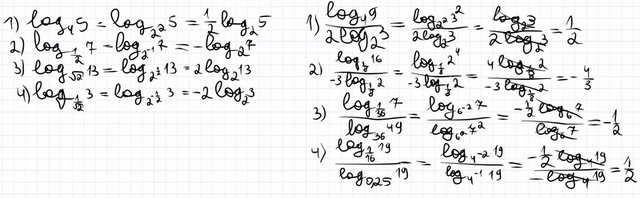 1) log₄5 = log_{2²}5 = 1/2 log₂5
2) log_{1/2}7 = log_{2⁻¹}7 = -log₂7
3) log_{√2}13 = log_{2^{1/2}}13 = 2log₂13
4) log_{1/√2}3 = log_{2^{-1/2}}3 = -2log₂3
1) log₄9 / 2log₂3 = log_{2²}3² / 2log₂3 = log₂3 / 2log₂3 = 1/2
2) log_{1/3}16 / -3log_{1/3}2 = log_{1/3}2⁴ / -3log_{1/3}2 = 4log_{1/3}2 / -3log_{1/3}2 = -4/3
3) log_{1/36}7 / log₃₆49 = log_{6⁻²}7 / log_{6²}7² = -1/2 log₆7 / log₆7 = -1/2
4) log_{1/16}19 / log_{0,25}19 = log_{4⁻²}19 / log_{4⁻¹}19 = -1/2 log₄19 / -log₄19 = 1/2